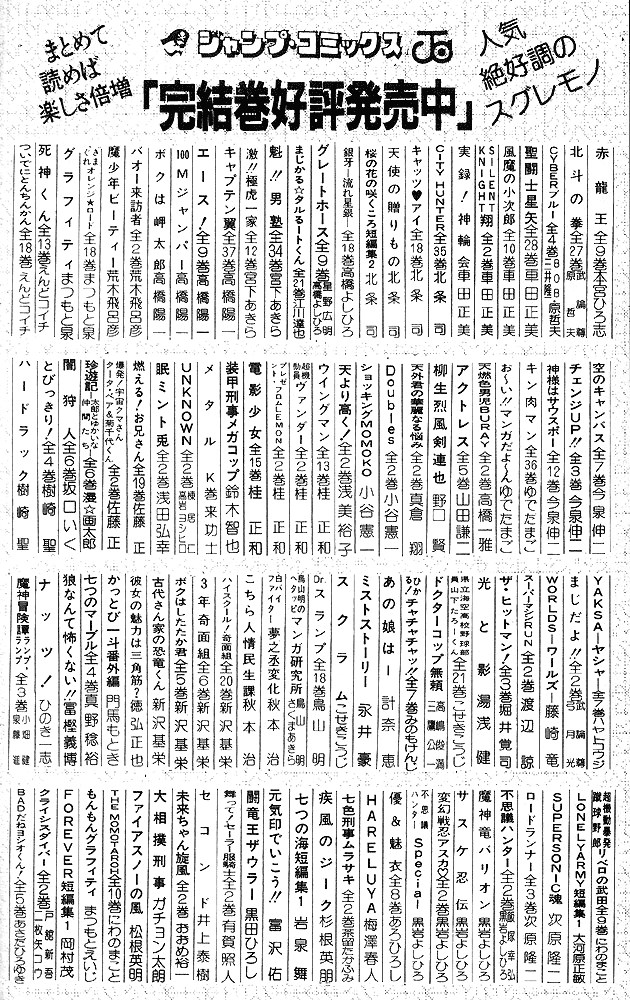 まとめて
読めば
楽しさ倍増
ジャンプ・コミックス
人気
絶好調の
スグレモノ
「完結巻好評発売中」
赤龍王 全9巻 本宮ひろ志
北斗の拳 全27巻 武論尊 原哲夫
CYBERブルー 全4巻 BOB 三井隆一 原哲夫
聖闘士星矢 全28巻 車田正美
風魔の小次郎 全10巻 車田正美
SILENT KNIGHT翔 全2巻 車田正美
実録!神輪会 車田正美
CITY HUNTER 全35巻 北条司
キャッツ♥アイ 全18巻 北条司
天使の贈りもの 北条司
桜の花の咲くころ 短編集2 北条司
銀牙―流れ星 銀― 全18巻 高橋よしひろ
グレートホース 全9巻 星野広明 高橋よしひろ
まじかる☆タルるートくん 全21巻 江川達也
魁!!男塾 全34巻 宮下あきら
激!!極虎一家 全12巻 宮下あきら
キャプテン翼 全37巻 高橋陽一
エース! 全9巻 高橋陽一
100Mジャンパー 高橋陽一
ボクは岬太郎 高橋陽一
バオー来訪者 全2巻 荒木飛呂彦
魔少年ビーティー 荒木飛呂彦
きまぐれオレンジ★ロード 全18巻 まつもと泉
グラフィティ まつもと泉
死神くん 全13巻 えんどコイチ
ついでにとんちんかん 全18巻 えんどコイチ
空のキャンバス 全7巻 今泉伸二
チェンジUP!! 全3巻 今泉伸二
神様はサウスポー 全12巻 今泉伸二
キン肉マン 全36巻 ゆでたまご
お〜い!!マンガだよ〜ん ゆでたまご
天燃色男児BURAY 全2巻 高橋一雅
アクトレス 全5巻 山田謙二
柳生烈風剣連也 野口賢
天外君の華麗なる悩み 全2巻 真倉翔
Doubles 全2巻 小谷憲一
ショッキングMOMOKO 小谷憲一
天より高く! 全2巻 浅美裕子
ウイングマン 全13巻 桂正和
超機動員ヴァンダー 全2巻 桂正和
プレゼント・フロムLEMON 全2巻 桂正和
電影少女 全15巻 桂正和
装甲刑事メガコップ 鈴木智也
メタルK 巻来功士
UNKNOWN 全2巻 榛居仁 高岩ヨシヒロ
眠兎 全2巻 浅田弘幸
燃える!お兄さん 全19巻 佐藤正
爆発!宇宙クマさん クータ・ベア&菊千代くん 全2巻 佐藤正
珍遊記―太郎とゆかいな仲間たち― 全6巻 漫☆画太郎
闇狩人 全6巻 坂口いく
とびっきり! 全4巻 樹崎聖
ハードラック 樹崎聖
YAKSA―ヤシャー 全7巻 ハヤトコウジ
まじだよ!! 全2巻 武論尊 弓月光
WORLDS―ワールズ― 藤崎竜
スーパーマシンRUN 全2巻 渡辺諒
ザ・ヒットマン! 全3巻 堀井覚司
光と影 湯浅健
県立海空高校野球部員山下たろーくん 全21巻 こせきこうじ
ドクターコップ無頼 高嶋俊満 三鷹公一
ひかる!チャチャチャッ!! 全7巻 みのもけんじ
あの娘は― 計奈恵
ミストストーリー 永井豪
スクラム こせきこうじ
Dr.スランプ 全18巻 鳥山明
鳥山明のヘタッピマンガ研究所 鳥山明 さくまあきら
白バイファイター夢之丞変化 秋本治
こちら人情民生課 秋本治
ハイスクール!奇面組 全20巻 新沢基栄
3年奇面組 全6巻 新沢基栄
ボクはしたたか君 全5巻 新沢基栄
古代さん家の恐竜くん 新沢基栄
彼女の魅力は三角筋? 徳弘正也
かっとび一斗番外編 門馬もとき
七つのマーブル 全4巻 真野稔裕
狼なんて怖くない!! 冨樫義博
ナッツ! ひのき一志
魔神冒険譚ランプ・ランプ 全3巻 小畑健 泉藤進
超機動暴発蹴球野郎 リベロの武田 全8巻 にわのまこと
LONELY ARMY 短編集1 大河原正敏
SUPERSONIC魂 次原隆二
ロードランナー 全3巻 次原隆二
不思議ハンター 全2巻 飯塚幸弘 黒岩よしひろ
魔神竜バリオン 黒岩よしひろ
サスケ忍伝 黒岩よしひろ
変幻戦忍アスカ♡ 全2巻 黒岩よしひろ
不思議ハンターSpecial 黒岩よしひろ
優&魅衣 全8巻 あろひろし
HARELUYA 梅澤春人
七色刑事ムラサキ 全2巻 茶留たかふみ
疾風のジーク 杉根英明
七つの海 短編集1 岩泉舞
元気印でいこう!! 富沢佑
闘竜王ザウラー 黒田ひろし
舞って!セーラー服騎士 全2巻 有賀照人
セコンド 井上泰樹
未来ちゃん旋風 全2巻 おおめ裕一
大相撲刑事 ガチョン太朗
ファイアスノーの風 松根英明
THE MOMOTAROH 全10巻 にわのまこと
もんもんグラフィティ まつもとえいじ
FOREVER 短編集1 岡村茂
クライシスダイバー 全2巻 戸舘新吾 二枚矢コウ
BADだねヨシオくん! 全5巻 あさだひろゆき